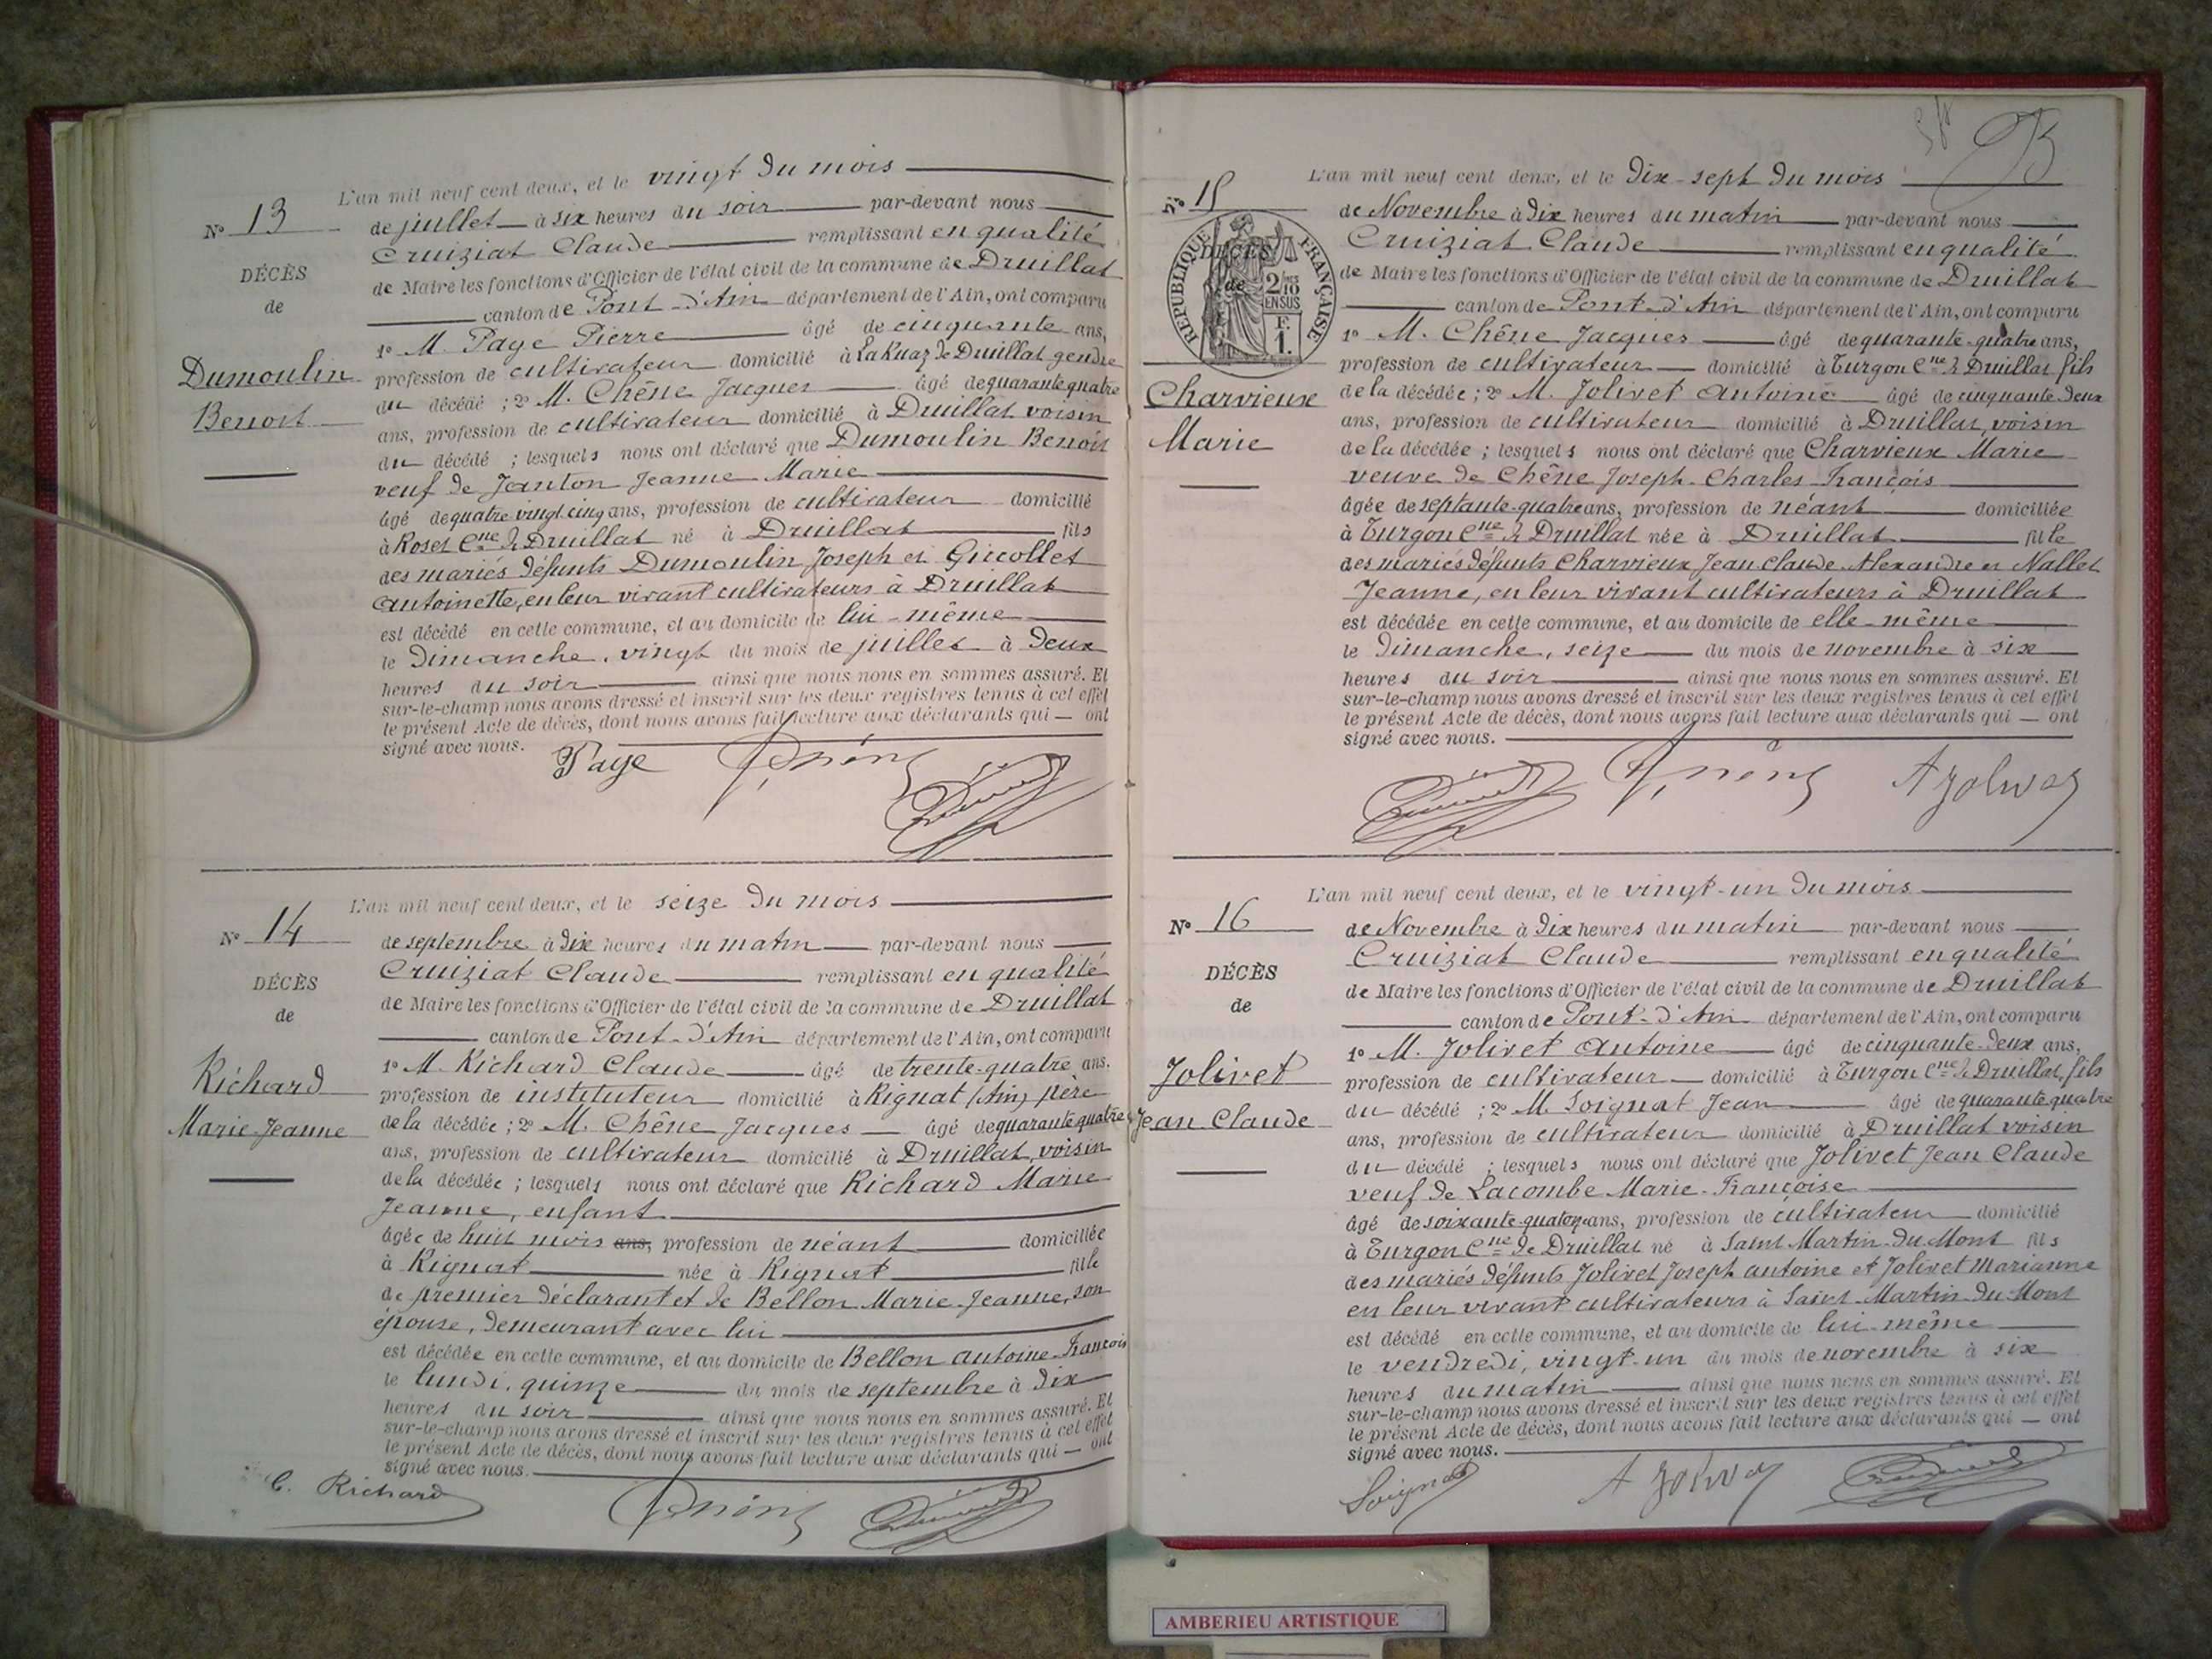 L'an mil neuf cent deux, et le vingt du mois
N° 13
de juillet à six heures du soir par-devant nous
Cruiziat Claude remplissant en qualité
DÉCÈS
de Maire les fonctions d'Officier de l'état civil de la commune de Druillat
de
canton de Pont-d'Ain département de l'Ain, ont comparu
1° M. Paye Pierre âgé de cinquante ans,
Dumoulin
profession de cultivateur domicilié à La Ruaz de Druillat gendre
Benoit
du décédé ; 2° M. Chêne Jacques âgé de quarante quatre
ans, profession de cultivateur domicilié à Druillat voisin
du décédé ; lesquels nous ont déclaré que Dumoulin Benoit
veuf de Janton Jeanne Marie
âgé de quatre vingt cinq ans, profession de cultivateur domicilié
à Roset Cne de Druillat né à Druillat fils
des mariés défunts Dumoulin Joseph et Guicollet
Antoinette, en leur vivant cultivateurs à Druillat
est décédé en cette commune, et au domicile de lui-même
le Dimanche, vingt du mois de juillet à deux
heures du soir ainsi que nous nous en sommes assuré. Et
sur-le-champ nous avons dressé et inscrit sur les deux registres tenus à cet effet
le présent Acte de décès, dont nous avons fait lecture aux déclarants qui — ont
signé avec nous.
Paye
L'an mil neuf cent deux, et le seize du mois
N° 14
de septembre à dix heures du matin par-devant nous
Cruiziat Claude remplissant en qualité
DÉCÈS
de Maire les fonctions d'Officier de l'état civil de la commune de Druillat
de
canton de Pont-d'Ain département de l'Ain, ont comparu
1° M. Richard Claude âgé de trente-quatre ans.
Richard
profession de instituteur domicilié à Rignat (Ain) père
Marie Jeanne
de la décédée ; 2° M. Chêne Jacques âgé de quarante quatre
ans, profession de cultivateur domicilié à Druillat, voisin
de la décédée ; lesquels nous ont déclaré que Richard Marie
Jeanne, enfant
âgée de huit mois ans, profession de néant domiciliée
à Rignat née à Rignat fille
de premier déclarant et de Bellon Marie Jeanne, son
épouse, demeurant avec lui
est décédée en cette commune, et au domicile de Bellon Antoine-François
le lundi, quinze du mois de septembre à dix
heures du soir ainsi que nous nous en sommes assuré. Et
sur-le-champ nous avons dressé et inscrit sur les deux registres tenus à cet effet
le présent Acte de décès, dont nous avons fait lecture aux déclarants qui — ont
signé avec nous.
C. Richard
L'an mil neuf cent deux, et le dix-sept du mois
N° 15
de Novembre à dix heures du matin par-devant nous
Cruiziat Claude remplissant en qualité
RÉPUBLIQUE FRANÇAISE
DÉCÈS
de
2/10 EN SUS
F. 1.
de Maire les fonctions d'Officier de l'état civil de la commune de Druillat
canton de Pont-d'Ain département de l'Ain, ont comparu
1° M. Chêne Jacques âgé de quarante-quatre ans,
profession de cultivateur domicilié à Turgon Cne de Druillat fils
Charvieux
de la décédée ; 2° M. Jolivet Antoine âgé de cinquante deux
Marie
ans, profession de cultivateur domicilié à Druillat, voisin
de la décédée ; lesquels nous ont déclaré que Charvieux Marie
veuve de Chêne Joseph-Charles-François
âgée de septante-quatre ans, profession de néant domiciliée
à Turgon Cne de Druillat née à Druillat fille
des mariés défunts Charvieux Jean-Claude-Alexandre et Nallet
Jeanne, en leur vivant cultivateurs à Druillat
est décédée en cette commune, et au domicile de elle-même
le Dimanche, seize du mois de novembre à six
heures du soir ainsi que nous nous en sommes assuré. Et
sur-le-champ nous avons dressé et inscrit sur les deux registres tenus à cet effet
le présent Acte de décès, dont nous avons fait lecture aux déclarants qui — ont
signé avec nous.
A Jolivet
L'an mil neuf cent deux, et le vingt-un du mois
N° 16
de Novembre à dix heures du matin par-devant nous
Cruiziat Claude remplissant en qualité
DÉCÈS
de Maire les fonctions d'Officier de l'état civil de la commune de Druillat
de
canton de Pont-d'Ain département de l'Ain, ont comparu
1° M. Jolivet Antoine âgé de cinquante-deux ans,
Jolivet
profession de cultivateur domicilié à Turgon Cne de Druillat, fils
Jean Claude
du décédé ; 2° M. Soignat Jean âgé de quarante quatre
ans, profession de cultivateur domicilié à Druillat voisin
du décédé ; lesquels nous ont déclaré que Jolivet Jean Claude
veuf de Lacombe Marie-Françoise
âgé de soixante-quatorze ans, profession de cultivateur domicilié
à Turgon Cne de Druillat né à Saint Martin-du-Mont fils
des mariés défunts Jolivet Joseph Antoine et Jolivet Marianne
en leur vivant cultivateurs à Saint-Martin-du-Mont
est décédé en cette commune, et au domicile de lui-même
le vendredi, vingt-un du mois de novembre à six
heures du matin ainsi que nous nous en sommes assuré. Et
sur-le-champ nous avons dressé et inscrit sur les deux registres tenus à cet effet
le présent Acte de décès, dont nous avons fait lecture aux déclarants qui — ont
signé avec nous.
Soignat A Jolivet
AMBERIEU ARTISTIQUE